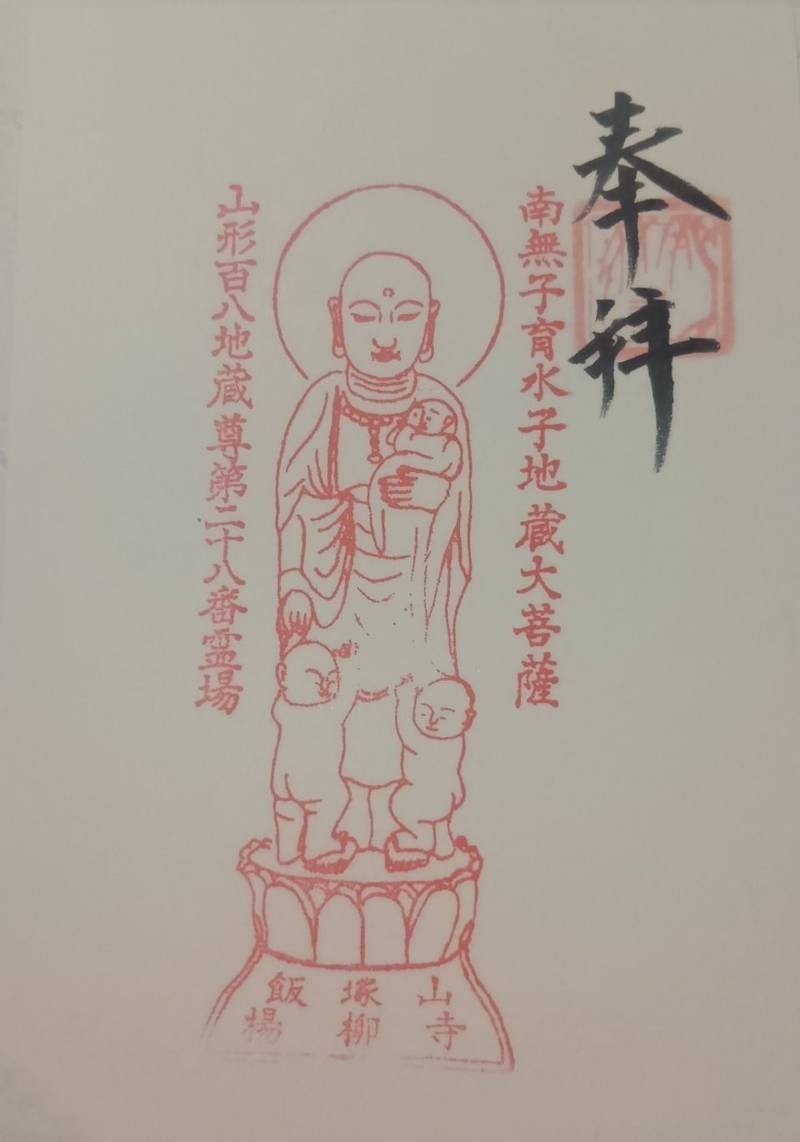 奉拝
南無子育水子地蔵大菩薩
山形百八地蔵尊第二十八番霊場
飯塚山
楊柳寺